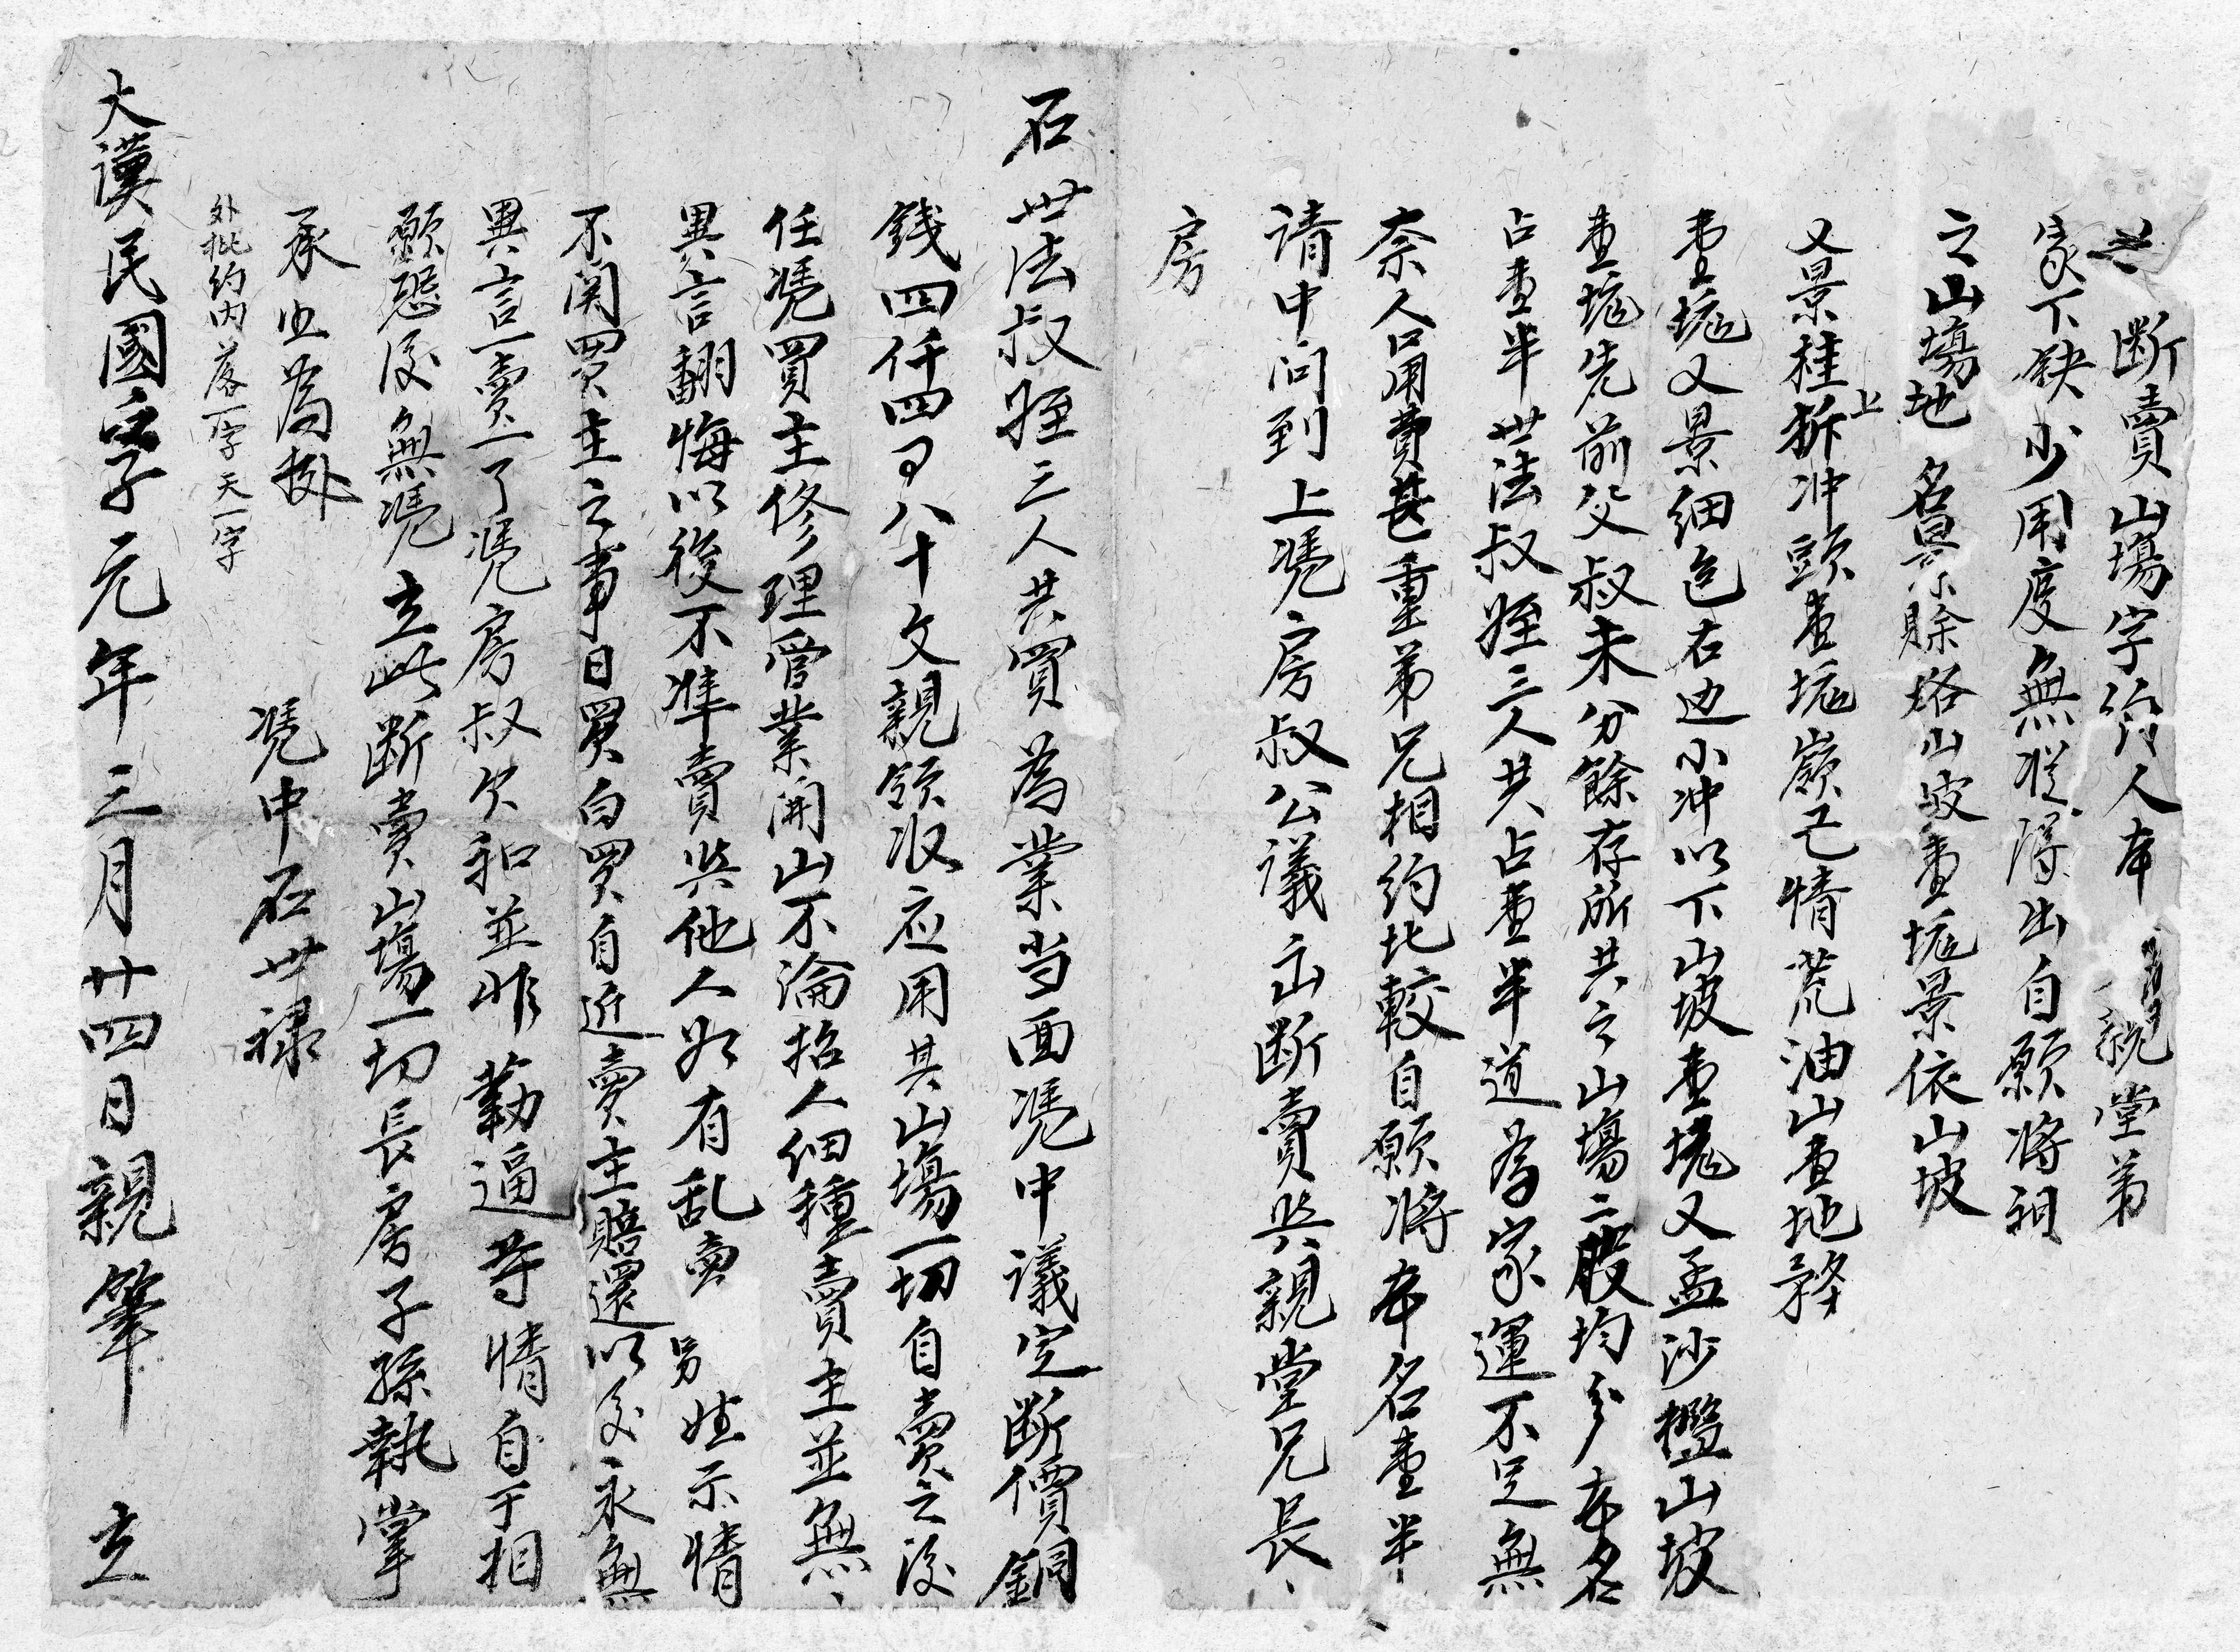 立断賣山塲字約人本　親堂弟
家下缺少用度無從得出自願將祖
之山塲地名景賒烙山坡壹塊景依山坡
又景桂拆冲頭壹塊嶺乙情荒油山壹地
上
壹塊又景細邑右边小冲以下山坡壹塊又孟沙檻山坡
壹塊先前父叔未分餘存所共之山塲二股均分本名
占壹半世法叔姪三人共占壹半道為家運不足無
奈人口用費甚重弟兄相約比較自願將本名壹半
请中问到上凭房叔公議立断賣與親堂兄長
房
石世法叔姪三人共買為業当面凭中議定断價銅
錢四仟四百八十文親領收应用其山塲一切自賣之後
任凴買主修理管業開山不淪招人佃種賣主並無
異言翻悔以後不準賣與他人如有乱賣　另姓示情
不関買主之事日買白買自近賣主賠還以後永無
異言一賣一了凭房叔欠和並非勒逼等情自于相
願恐後無凭立此断賣山塲一切長房子孫執掌
承业為挶
外批約内落一字天一字
凭中石世禄
大漢民國壬子元年三月廿四日親筆　立